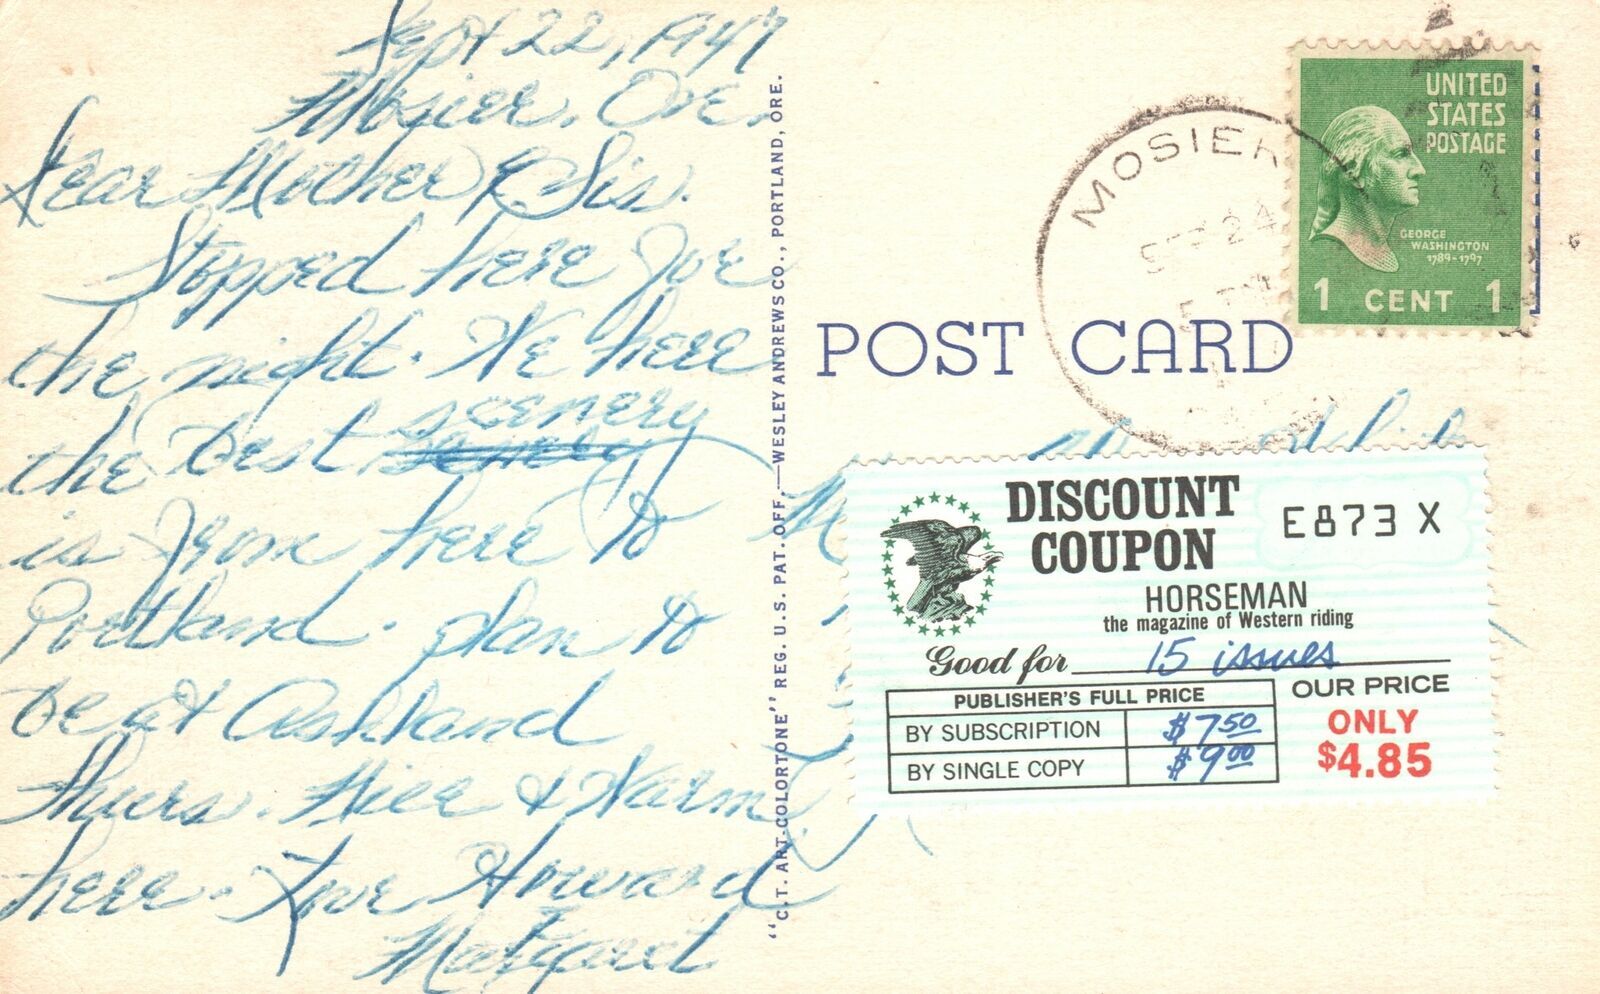 Sept 22, 1947
Mosier, Ore.
Dear Mother & Sis.
Stopped here for
the night. We here
the best scenery
is from here to
Portland. plan to
be at Ashland
thurs. Nice & Warm
here. Love Howard
Margaret
"C.T. ART-COLORTONE" REG. U.S. PAT. OFF.—WESLEY ANDREWS CO., PORTLAND, ORE.
POST CARD
MOSIER
SEP 24
UNITED
STATES
POSTAGE
GEORGE
WASHINGTON
1789-1797
1 CENT 1
DISCOUNT
COUPON
E873 X
HORSEMAN
the magazine of Western riding
Good for 15 issues
PUBLISHER'S FULL PRICE
BY SUBSCRIPTION $7.50
BY SINGLE COPY $9.00
OUR PRICE
ONLY
$4.85